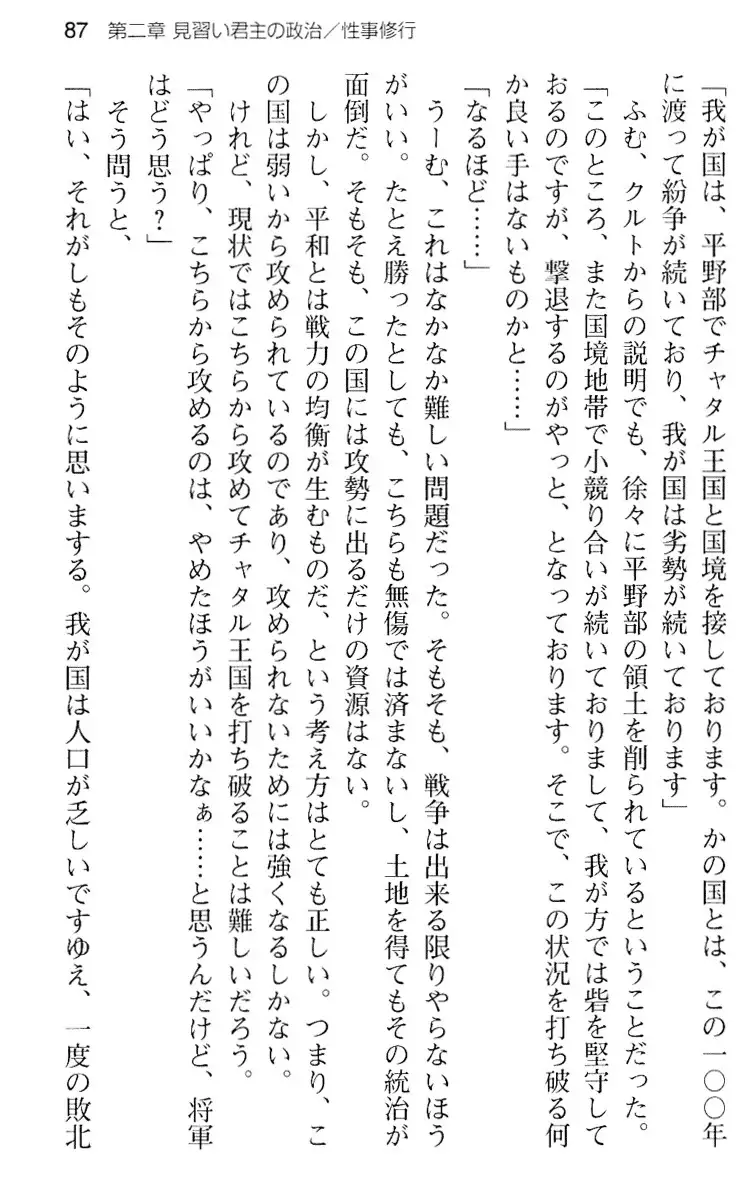 87　第二章 見習い君主の政治／性事修行
「我が国は、平野部でチャタル王国と国境を接しております。かの国とは、この一〇〇年
に渡って紛争が続いており、我が国は劣勢が続いております」
　ふむ、クルトからの説明でも、徐々に平野部の領土を削られているということだった。
「このところ、また国境地帯で小競り合いが続いておりまして、我が方では砦を堅守して
おるのですが、撃退するのがやっと、となっております。そこで、この状況を打ち破る何
か良い手はないものかと……」
「なるほど……」
　うーむ、これはなかなか難しい問題だった。そもそも、戦争は出来る限りやらないほう
がいい。たとえ勝ったとしても、こちらも無傷では済まないし、土地を得てもその統治が
面倒だ。そもそも、この国には攻勢に出るだけの資源はない。
　しかし、平和とは戦力の均衡が生むものだ、という考え方はとても正しい。つまり、こ
の国は弱いから攻められているのであり、攻められないためには強くなるしかない。
　けれど、現状ではこちらから攻めてチャタル王国を打ち破ることは難しいだろう。
「やっぱり、こちらから攻めるのは、やめたほうがいいかなぁ……と思うんだけど、将軍
はどう思う？」
　そう問うと、
「はい、それがしもそのように思いまする。我が国は人口が乏しいですゆえ、一度の敗北